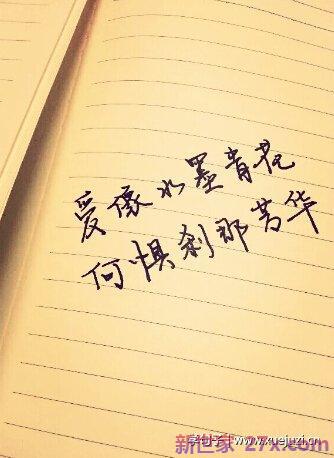 爱像水墨青花
何惧刹那芳华
学句子 www.xuejuzi.cn
新世家 27x.com